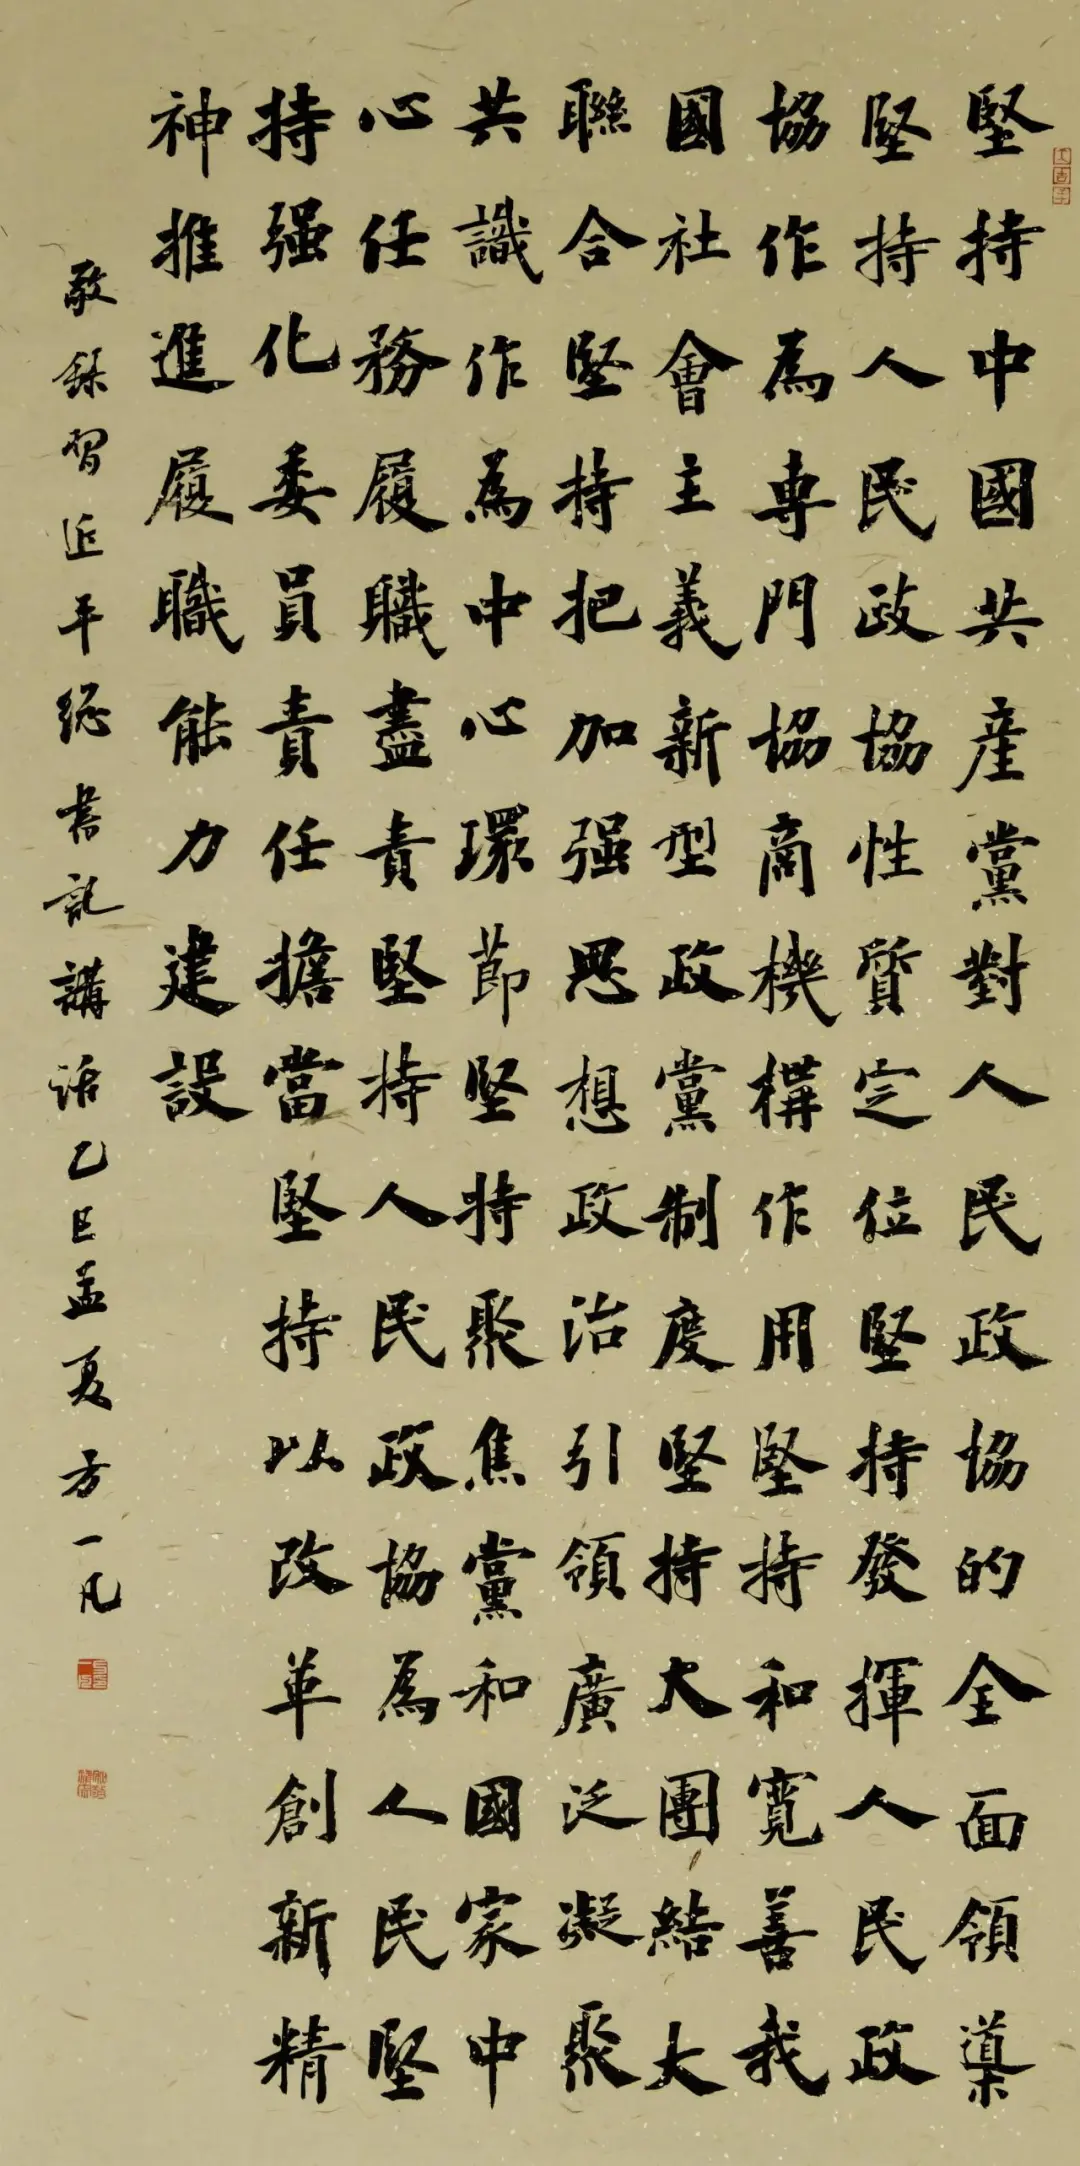 堅持中國共産黨對人民政協的全面領導
堅持人民政協性質定位堅持發揮人民政
協作為專門協商機構作用堅持和寬善我
國社會主義新型政黨制度堅持大團結大
聯合堅持把加强思想政治引領廣泛凝聚
共識作為中心環節堅持聚焦黨和國家中
心任務履職盡責堅持人民政協為人民堅
持强化委員責任擔當堅持以改革創新精
神推進履職能力建設
敬録習近平總書記講話乙巳孟夏方一凡